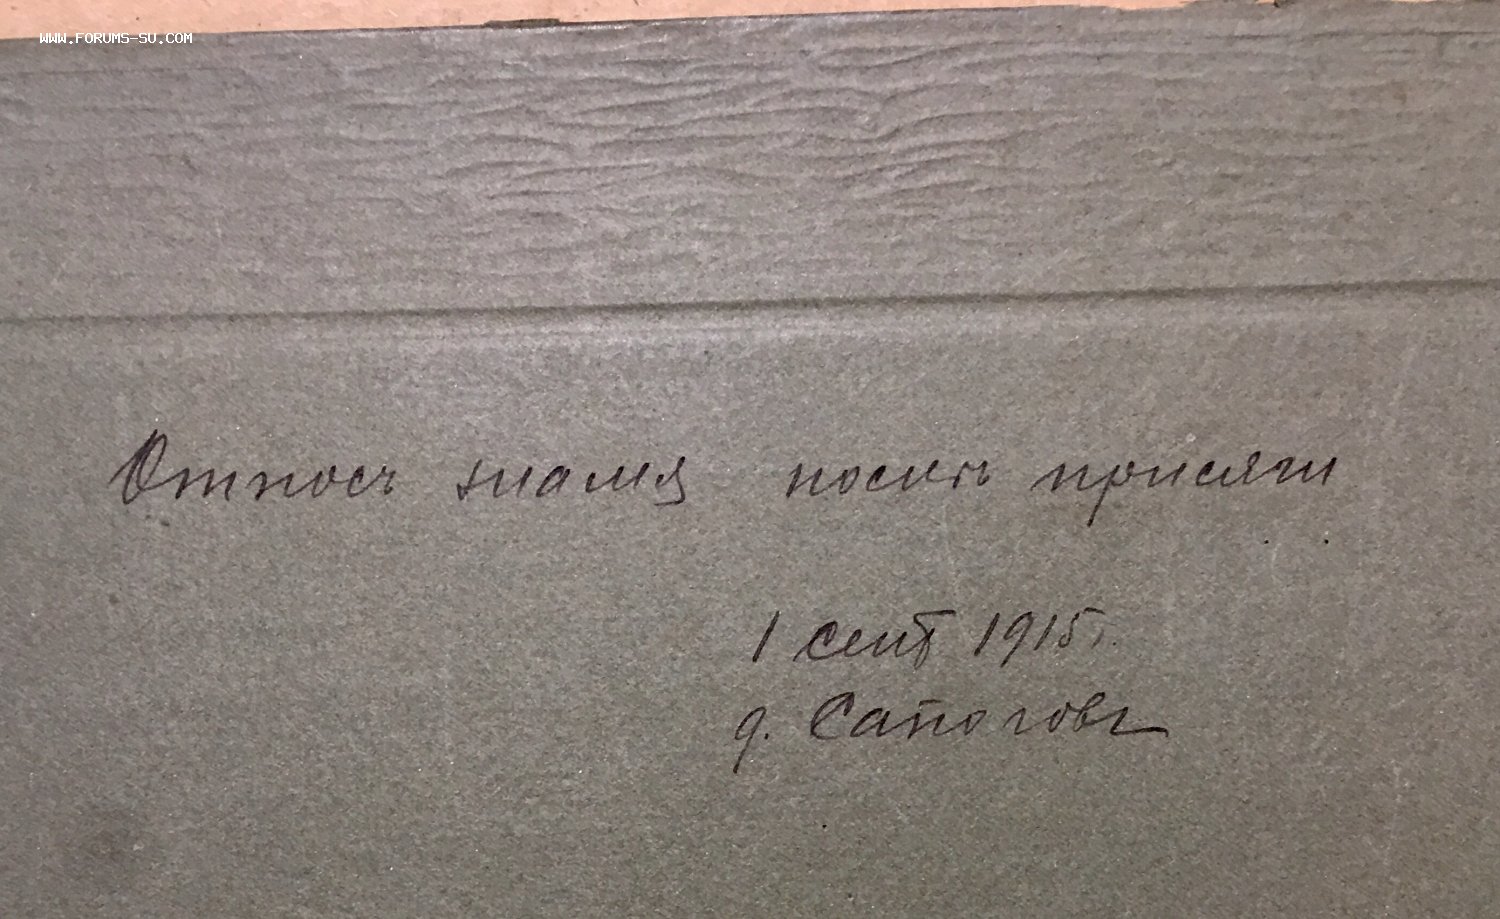 WWW.FORUMS-SU.COM
Относъ знамя послѣ присяги
1 сент 1915г.
д. Сапоговъ